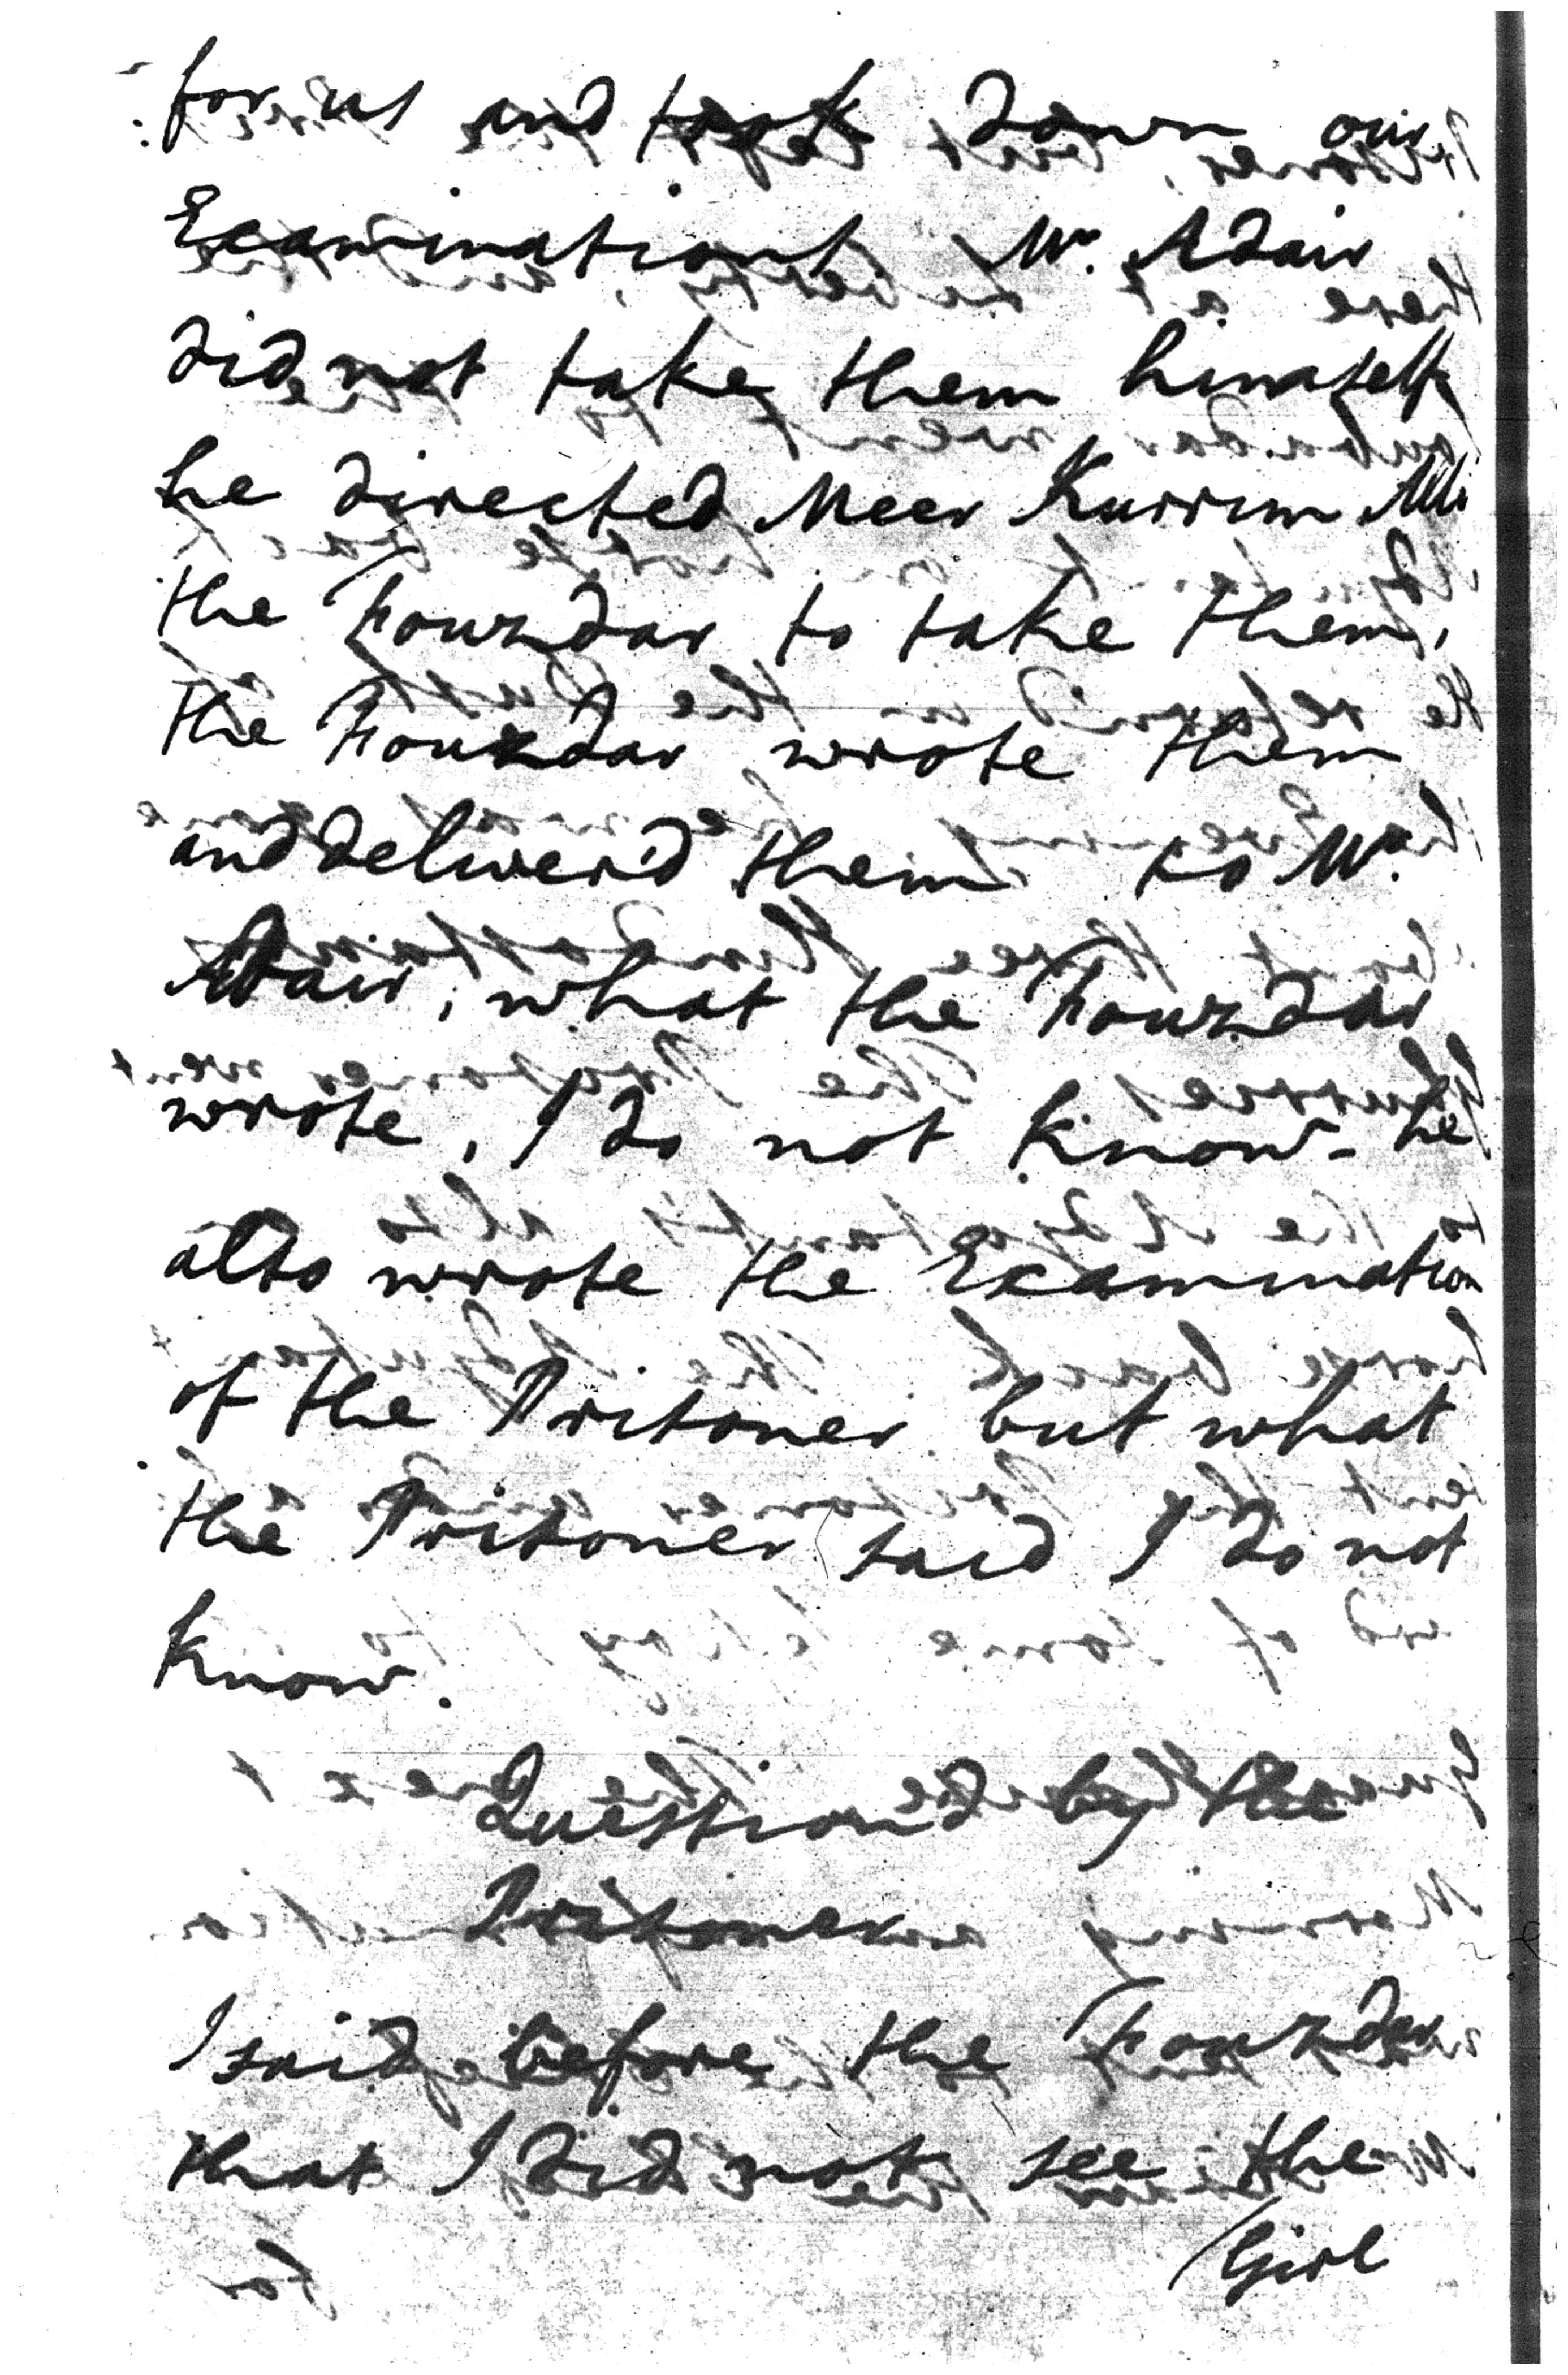 for us and took down our
Examinations. Mr. Adair
did not take them himself,
he directed Meer Kurrim Alli
the Fouzdar to take them,
the Fouzdar wrote them
and deliver'd them to Mr.
Adair, what the Fouzdar
wrote, I do not know - he
also wrote the Examination
of the Prisoner but what
the Prisoner said I do not
know.
Question'd by the
Prisoner
I said before the Fouzdar
that I did not see the
Girl